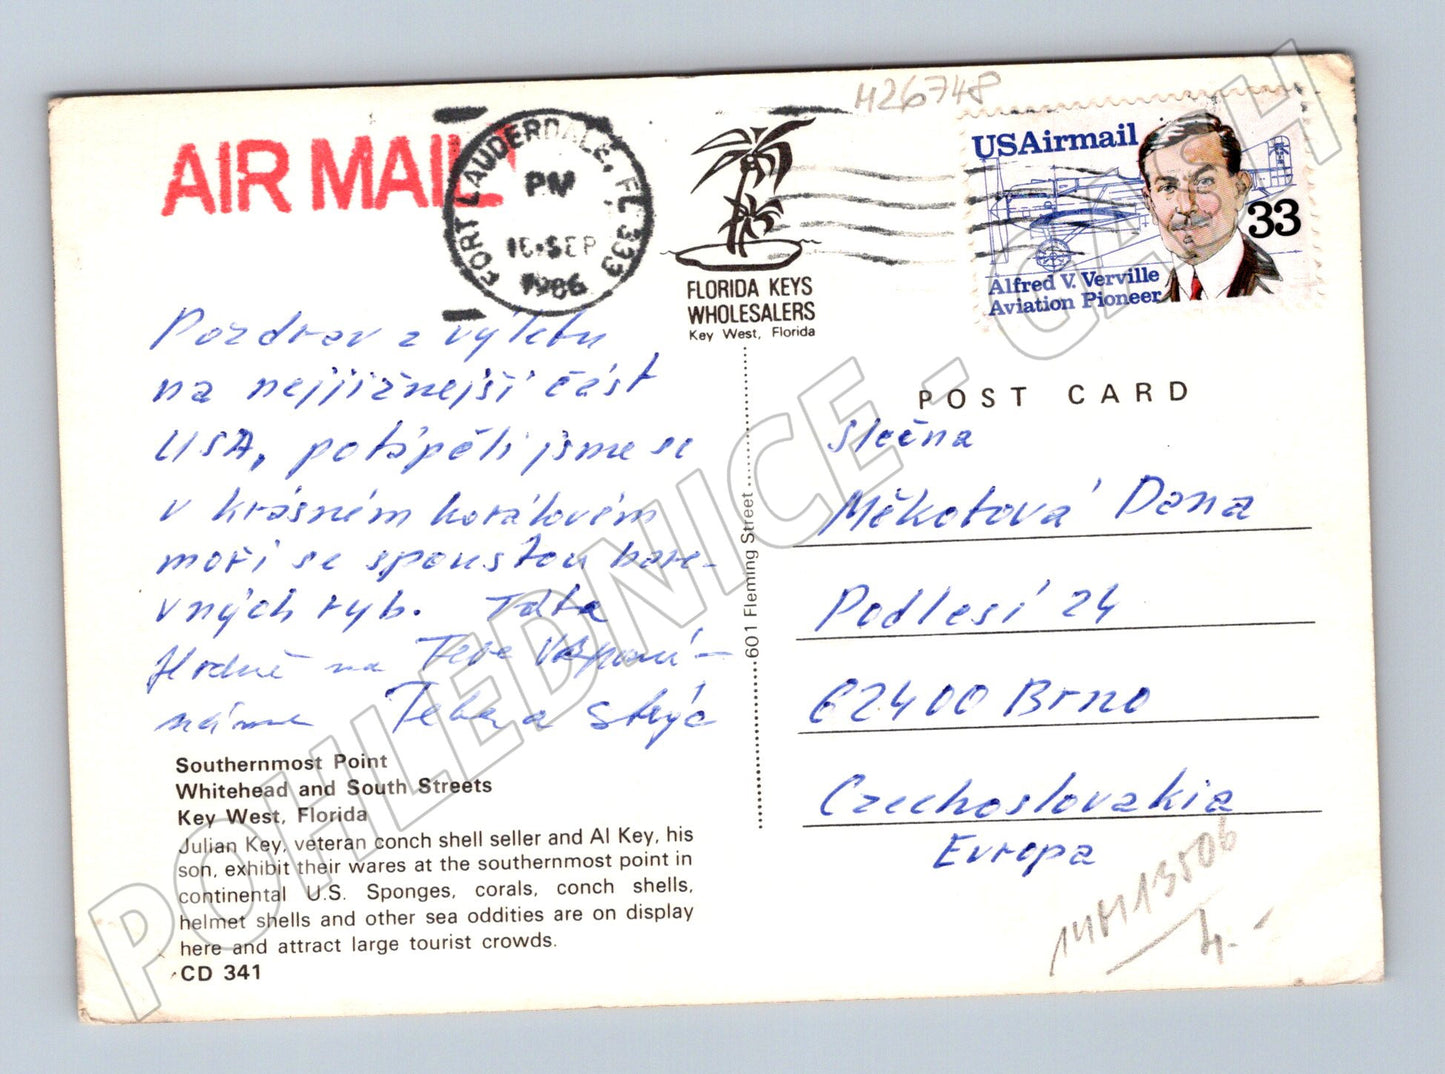 H26748
AIR MAIL
FORT LAUDERDALE, FL 333
PM
16 SEP
1986
FLORIDA KEYS
WHOLESALERS
Key West, Florida
USAirmail
33
Alfred V. Verville
Aviation Pioneer
Pozdrav z výletu
na nejjižnejší část
USA, potápěli jsme se
v krásném korálovém
moři se spoustou bare-
vných ryb. Táta
Hodně na Tebe vzpomí-
náme Teta a strýc
Southernmost Point
Whitehead and South Streets
Key West, Florida
Julian Key, veteran conch shell seller and Al Key, his
son, exhibit their wares at the southernmost point in
continental U.S. Sponges, corals, conch shells,
helmet shells and other sea oddities are on display
here and attract large tourist crowds.
CD 341
601 Fleming Street
POST CARD
Slečna
Měkotová Dana
Podlesí 24
62400 Brno
Czechoslovakia
Evropa
4.-
POHLEDNICE - CASH